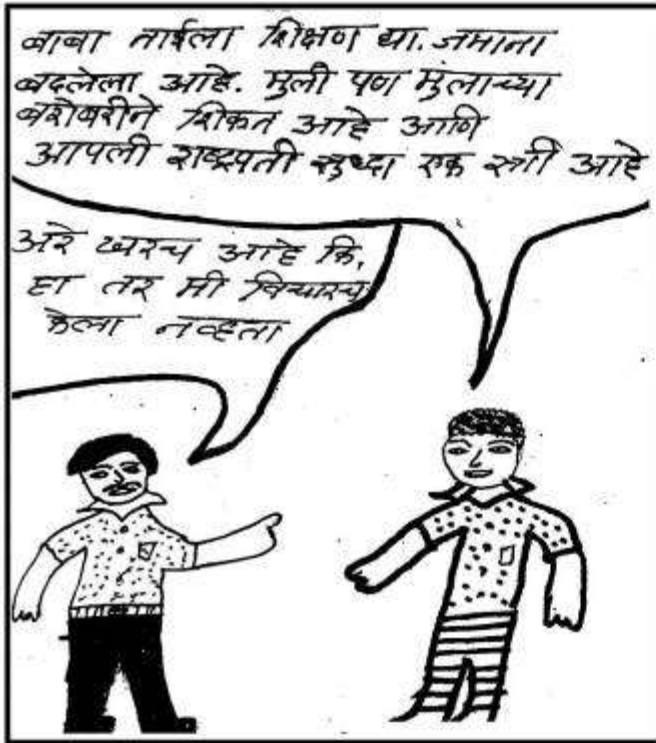 बाबा ताईला शिक्षण द्या. जमाना
बदलेला आहे. मुली पण मुलाच्या
बरोबरीने शिकत आहे आणि
आपली राष्ट्रपती सुध्दा एक स्त्री आहे
अरे खरच आहे कि,
हा तर मी विचारच
केला नव्हता